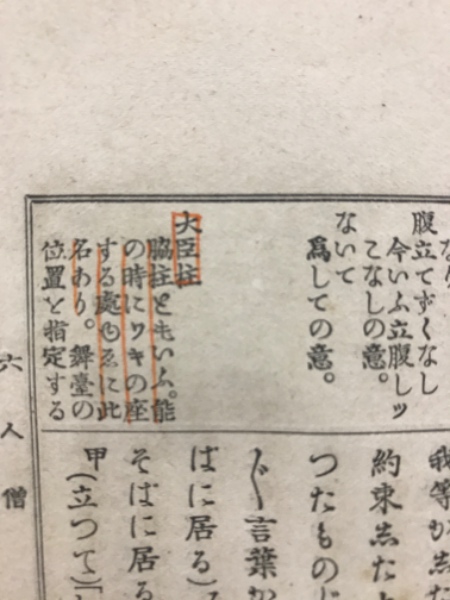 腹立てずくなし
今いふ立腹しッ
こなしの意。
ないて
爲しての意。
大臣柱
脇柱ともいふ。能
の時にワキの座
する處ゆゑに此
名あり。舞臺の
位置を指定する
約束志たと
つたものじ
言葉か
はに居る)
そばに居る
甲(立つて)「
六人僧